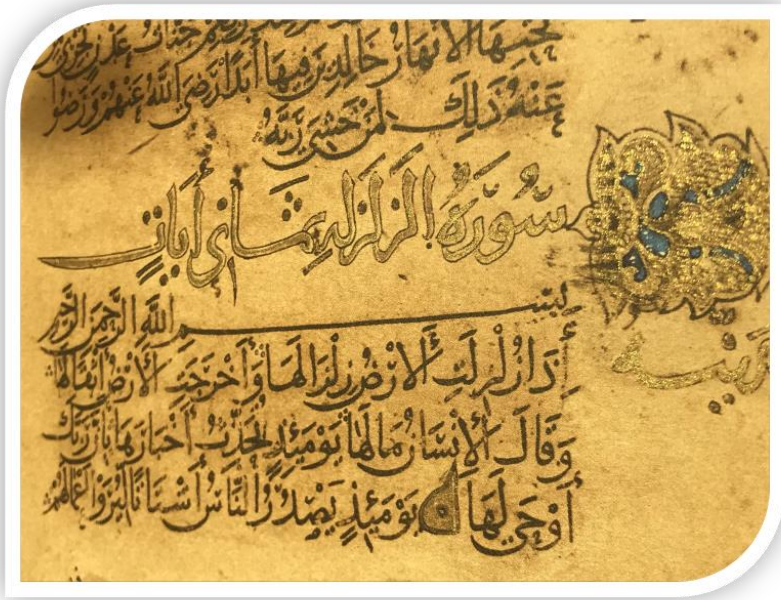 جَنَّاتُ عَدْنٍ تَجْرِي
تَحْتِهَا الْأَنْهَارُ خَالِدِينَ فِيهَا أَبَدًا رَضِيَ اللَّهُ عَنْهُمْ وَرَضُوا
عَنْهُ ذَلِكَ لِمَنْ خَشِيَ رَبَّهُ
سُورَةُ الزَلْزَلَةِ ثَمَانِي أَيَاتٍ
بِسْمِ اللَّهِ الرَّحْمَنِ الرَّحِيمِ
إِذَا زُلْزِلَتِ الْأَرْضُ زِلْزَالَهَا وَأَخْرَجَتِ الْأَرْضُ أَثْقَالَهَا
وَقَالَ الْإِنْسَانُ مَا لَهَا يَوْمَئِذٍ تُحَدِّثُ أَخْبَارَهَا بِأَنَّ رَبَّكَ
أَوْحَى لَهَا يَوْمَئِذٍ يَصْدُرُ النَّاسُ أَشْتَاتًا لِيُرَوْا أَعْمَالَهُمْ